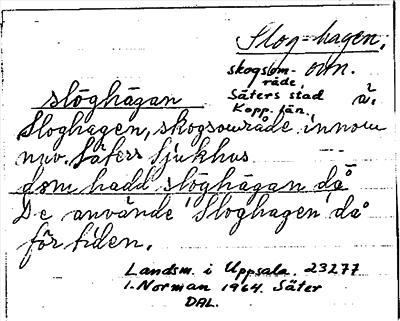 Slog-hagen,
skogsom- ovn.
råde,
Säters stad ä.
Kopp. län.
slöghägan
Sloghagen, skogsområde innom
nuv. Säters Sjukhus
dom hadd slöghägan då
De använde Sloghagen då
för tiden.
Landsm. i Uppsala. 23277
I. Norman 1964. Säter
DAL.